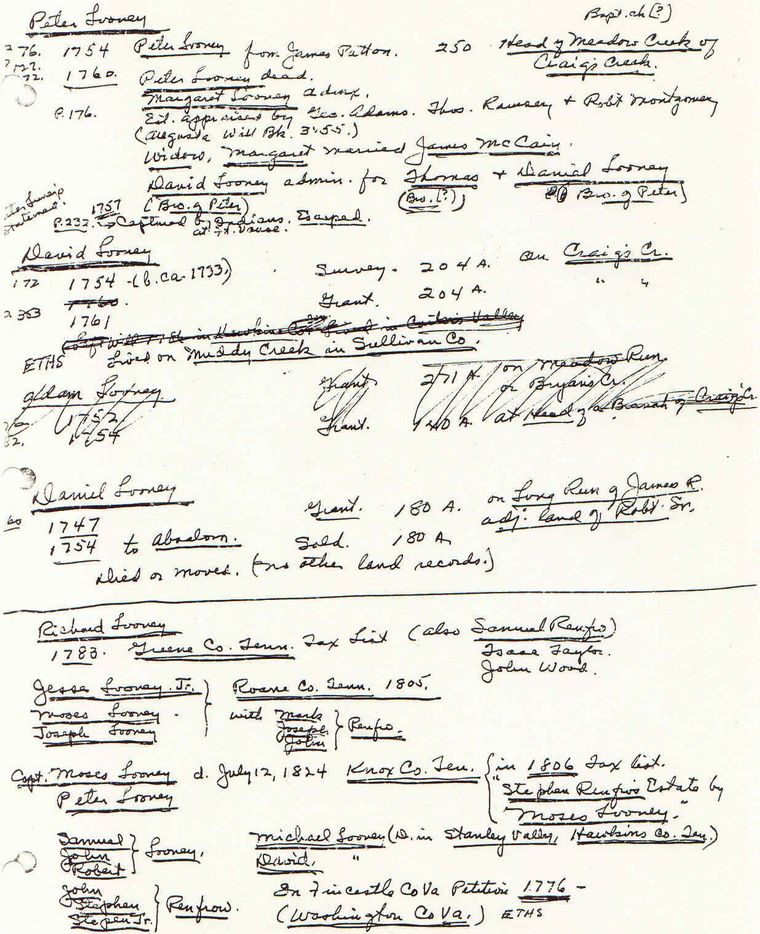 Bapt. ch (?)
Peter Looney
276. 1754 Peter Looney from James Patton. 250 Head of Meadow Creek of
Craig's Creek.
72. 1760. Peter Looney dead.
Margaret Looney admx.
P.176. Est. appraised by Geo. Adams. Thos. Ramsey & Robt Montgomery
(Augusta Will Bk. 3:55.)
Widow, Margaret married James McCain.
David Looney admin. for Thomas & Daniel Looney
(Bro. of Peter) (Bro. (?)) Bro. of Peter)
1757
P.232. Captured by Indians. Escaped.
at Ft. Vause.
David Looney
172 1754 - (b. ca. 1733,) Survey. 204 A. on Craig's Cr.
353 1760. Grant. 204 A. " "
1761
ETHS Lived on Muddy Creek in Sullivan Co.
Adam Looney Grant. 271 A. on Meadow Run.
or Bryans Cr.
1752 Grant. 140 A. at Head of a Branch of Craig's Cr.
1754
Daniel Looney Grant. 180 A. on Long Run of James R.
60 1747 adj. land of Robt. Sr.
1754 to Absalom. Sold. 180 A
Died or moved. (no other land records.)
Richard Looney
1783. Greene Co. Tenn. Tax List (also Samuel Renfro)
Isaac Taylor.
John Wood.
Jesse Looney. Jr. Roane Co. Tenn. 1805.
Moses Looney with Mark
Joseph Looney Joseph Renfro.
John
Capt. Moses Looney d. July 12, 1824 Knox Co. Ten. in 1806 Tax list.
Peter Looney "Stephen Renfros Estate by
Moses Looney."
Samuel Michael Looney (D. in Stanley Valley, Hawkins Co. Ten.)
John Looney,
Robert David, "
John In Fincastle Co Va Petition 1776 -
Stephen Renfrow.
Stepen Jr. (Washington Co Va.) ETHS